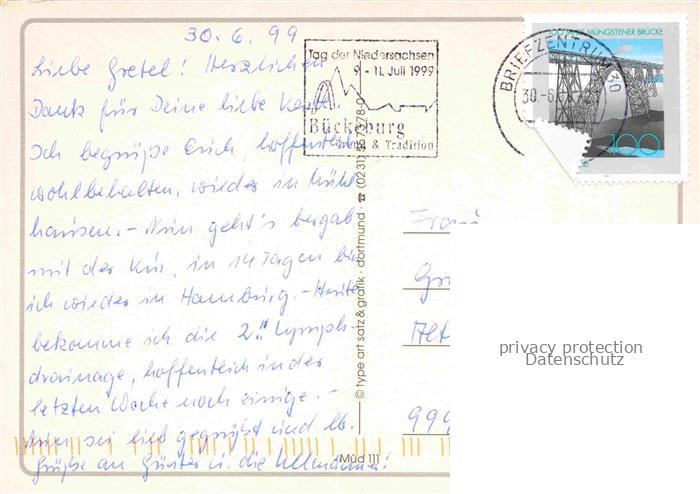 30.6.99
Liebe Gretel! Herzlichen
Dank für Deine liebe Karte.
Ich begrüße Euch, hoffentlich
wohlbehalten, wieder in Mühl-
hausen. - Nun geht's bergab
mit der Kur, in 14 Tagen bin
ich wieder in Hamburg. - Heute
bekomme ich die 2. Lymph-
drainage, hoffentlich in der
letzten Woche noch einige. -
Nun sei lieb gegrüßt und lb.
Grüße an Günter u. die
Tag der Niedersachsen
9. - 11. Juli 1999
Bückeburg
& Tradition
BRIEFZENTRUM 30
30.-6.
100 JAHRE MÜNGSTENER BRÜCKE
100
© type art satz & grafik · dortmund · ☎ (0231)
Müd 111
Frau
Gr
Alt
999
privacy protection
Datenschutz